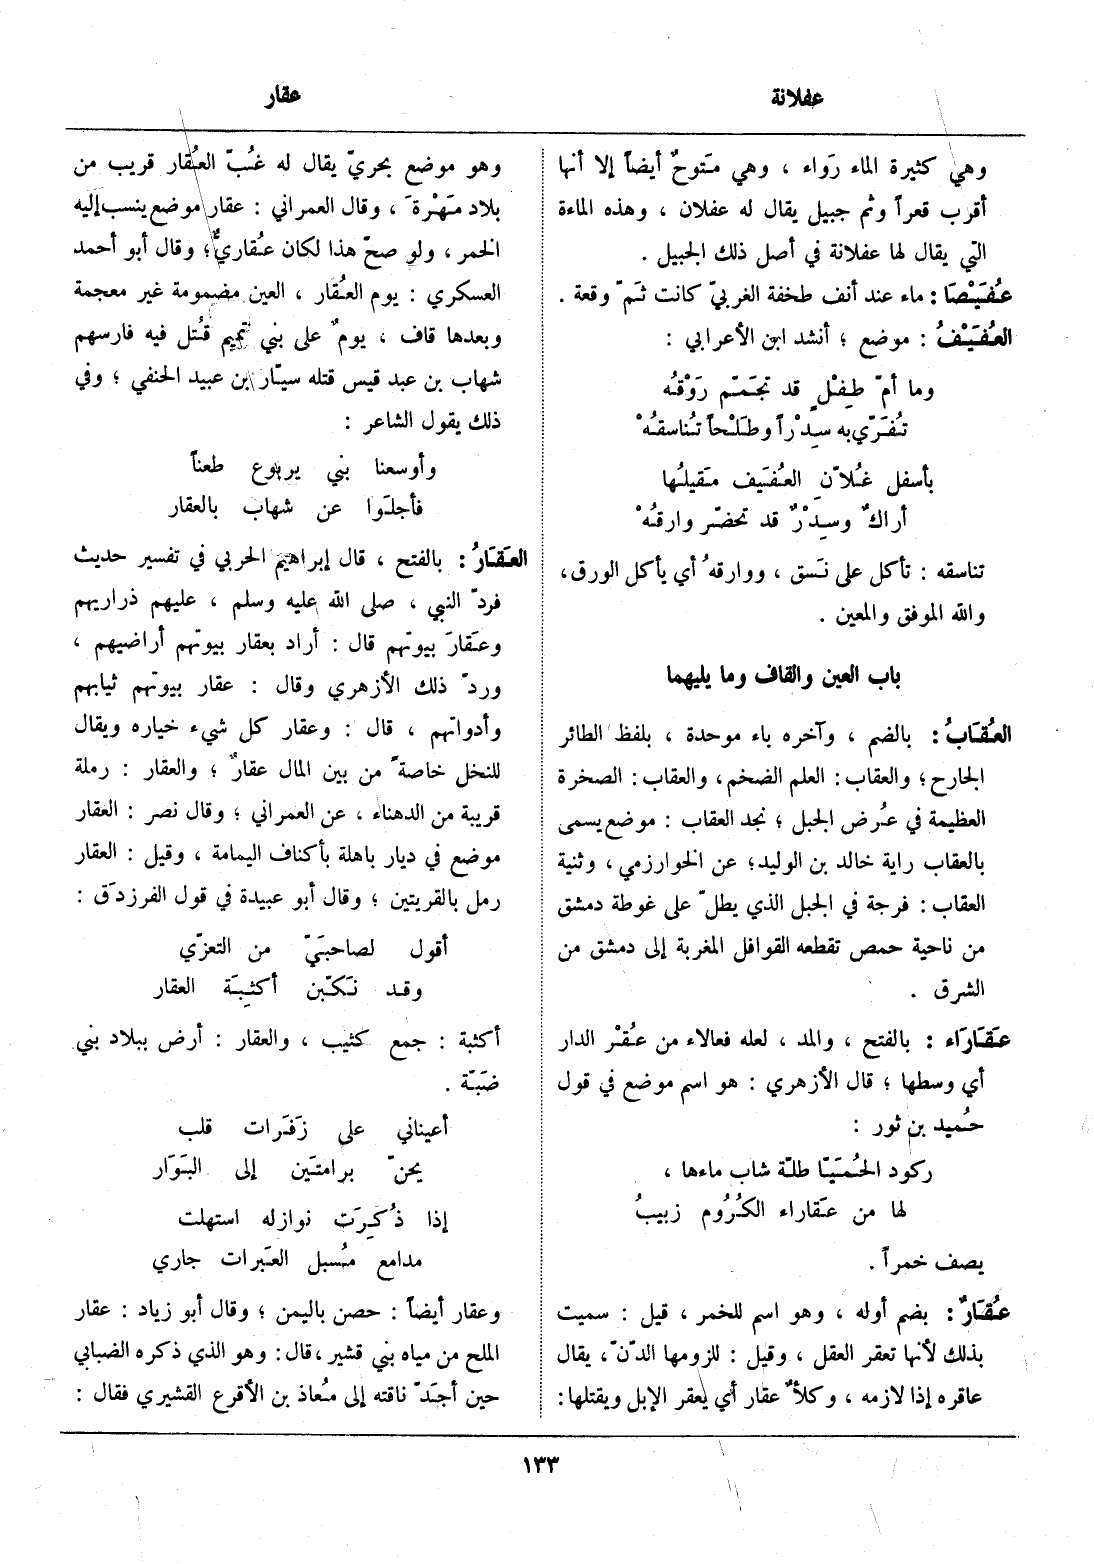 عفلانة
عقار
وهي كثيرة الماء رَواء ، وهي مَتوحٌ أيضاً إلا أنها
أقرب قعراً وثم جبيل يقال له عفلان ، وهذه الماءة
التي يقال لها عفلانة في أصل ذلك الجبيل .
عُفَيْصَا : ماء عند أنف طخفة الغربيّ كانت ثَمّ وقعة .
العُفَيْفُ : موضع ؛ أنشد ابن الأعرابي :
وما أمّ طِفْلٍ قد تجَمّم رَوْقُه
تُفَرّي به سِدْراً وطَلْحاً تُناسقُهْ
بأسفل غُلاّن العُفَيف مَقيلُها
أراكٌ وسِدْرٌ قد تحضّر وارقُهْ
تناسقه : تأكل على نَسق ، ووارقهُ أي يأكل الورق ،
والله الموفق والمعين .
باب العين والقاف وما يليهما
العُقَابُ : بالضم ، وآخره باء موحدة ، بلفظ الطائر
الجارح ؛ والعقاب : العلم الضخم ، والعقاب : الصخرة
العظيمة في عُرض الجبل ؛ نجد العقاب : موضع يسمى
بالعقاب راية خالد بن الوليد ؛ عن الخوارزمي ، وثنية
العقاب : فرجة في الجبل الذي يطلّ على غوطة دمشق
من ناحية حمص تقطعه القوافل المغربة إلى دمشق من
الشرق .
عَقَارَاء : بالفتح ، والمد ، لعله فعالاء من عُقْر الدار
أي وسطها ؛ قال الأزهري : هو اسم موضع في قول
حُميد بن ثور :
ركود الحُمَيّا طلّة شاب ماءها ،
لها من عَقاراء الكُرُوم زبيبُ
يصف خمراً .
عُقَارٌ : بضم أوله ، وهو اسم للخمر ، قيل : سميت
بذلك لأنها تعقر العقل ، وقيل : للزومها الدّنّ ، يقال
عاقره إذا لازمه ، وكلأٌ عقار أي يعقر الإبل ويقتلها :
وهو موضع بحريّ يقال له غُبّ العُقار قريب من
بلاد مَهْرةَ ، وقال العمراني : عقار موضع ينسب إليه
الخمر ، ولو صحّ هذا لكان عُقاريٌّ ؛ وقال أبو أحمد
العسكري : يوم العُقار ، العين مضمومة غير معجمة
وبعدها قاف ، يومٌ على بني تميم قُتل فيه فارسهم
شهاب بن عبد قيس قتله سيّار بن عبيد الحنفي ؛ وفي
ذلك يقول الشاعر :
وأوسعنا بني يربوع طعناً
فأجلَوا عن شهاب بالعقار
العَقَارُ : بالفتح ، قال إبراهيم الحربي في تفسير حديث
فردّ النبي ، صلى الله عليه وسلم ، عليهم ذراريهم
وعَقارَ بيوتهم قال : أراد بعقار بيوتهم أراضيهم ،
وردّ ذلك الأزهري وقال : عقار بيوتهم ثيابهم
وأدواتهم ، قال : وعقار كل شيء خياره ويقال
للنخل خاصةً من بين المال عقارٌ ؛ والعقار : رملة
قريبة من الدهناء ، عن العمراني ؛ وقال نصر : العقار
موضع في ديار باهلة بأكناف اليمامة ، وقيل : العقار
رمل بالقريتين ؛ وقال أبو عبيدة في قول الفرزدَق :
أقول لصاحبَيّ من التعزّي
وقد نَكّبن أكثِبَة العقار
أكثبة : جمع كثيب ، والعقار : أرض ببلاد بني
ضَبّة .
أعيناني على زَفَرات قلب
يحنّ برامتَين إلى البَوَار
إذا ذُكِرَت نوازله استهلت
مدامع مُسبل العبَرات جاري
وعقار أيضاً : حصن باليمن ؛ وقال أبو زياد : عقار
الملح من مياه بني قشير ، قال : وهو الذي ذكره الضبابي
حين أجَدّ ناقته إلى مُعاذ بن الأقرع القشيري فقال :
١٣٣